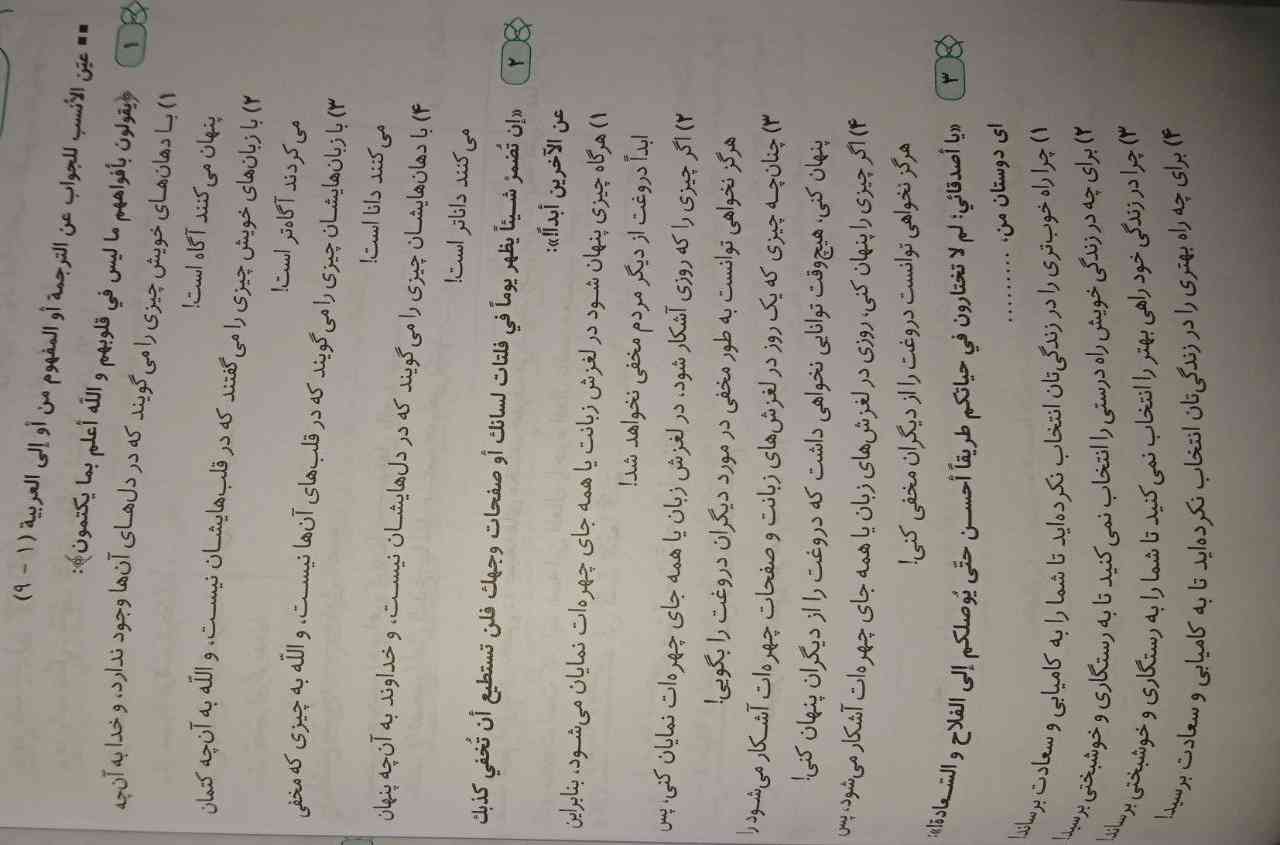 ■■ عيّن الأنسب للجواب عن الترجمة أو المفهوم من أو إلى العربية (۱ - ۹)
۱
﴿يقولون بأفواههم ما ليس في قلوبهم و اللّه أعلم بما يكتمون﴾:
۱) با دهان‌های خویش چیزی را می‌گویند که در دل‌های آن‌ها وجود ندارد، و خدا به آن‌چه
پنهان می‌کنند آگاه است!
۲) با زبان‌های خویش چیزی را می‌گفتند که در قلب‌هایشان نیست، و اللّه به آن‌چه کتمان
می‌کردند آگاه‌تر است!
۳) با زبان‌هایشان چیزی را می‌گویند که در قلب‌های آن‌ها نیست، و اللّه به چیزی که مخفی
می‌کنند دانا است!
۴) با دهان‌هایشان چیزی را می‌گویند که در دل‌هایشان نیست، و خداوند به آن‌چه پنهان
می‌کنند داناتر است!
۲
«إن تُضمرْ شيئاً يظهر يوماً في فلتات لسانك أو صفحات وجهك فلن تستطيع أن تُخفي كذبك
عن الآخرين أبداً!»:
۱) هرگاه چیزی پنهان شود در لغزش زبانت یا همه جای چهره‌ات نمایان می‌شود، بنابراین
ابداً دروغت از دیگر مردم مخفی نخواهد شد!
۲) اگر چیزی را که روزی آشکار شود، در لغزش زبان یا همه جای چهره‌ات نمایان کنی، پس
هرگز نخواهی توانست به طور مخفی در مورد دیگران دروغت را بگویی!
۳) چنان‌چه چیزی که یک روز در لغزش‌های زبانت و صفحات چهره‌ات آشکار می‌شود را
پنهان کنی، هیچ‌وقت توانایی نخواهی داشت که دروغت را از دیگران پنهان کنی!
۴) اگر چیزی را پنهان کنی، روزی در لغزش‌های زبان یا همه جای چهره‌ات آشکار می‌شود، پس
هرگز نخواهی توانست دروغت را از دیگران مخفی کنی!
۳
«يا أصدقائي؛ لم لا تختارون في حياتكم طريقاً أحسن حتّى يُوصلكم إلى الفلاح و السّعادة!»:
ای دوستان من، ..........
۱) چرا راه خوب‌تری را در زندگی‌تان انتخاب نکرده‌اید تا شما را به کامیابی و سعادت برساند!
۲) برای چه در زندگی خویش راه درستی را انتخاب نمی‌کنید تا به رستگاری و خوشبختی برسید!
۳) چرا در زندگی خود راهی بهتر را انتخاب نمی‌کنید تا شما را به رستگاری و خوشبختی برساند!
۴) برای چه راه بهتری را در زندگی‌تان انتخاب نکرده‌اید تا به کامیابی و سعادت برسید!